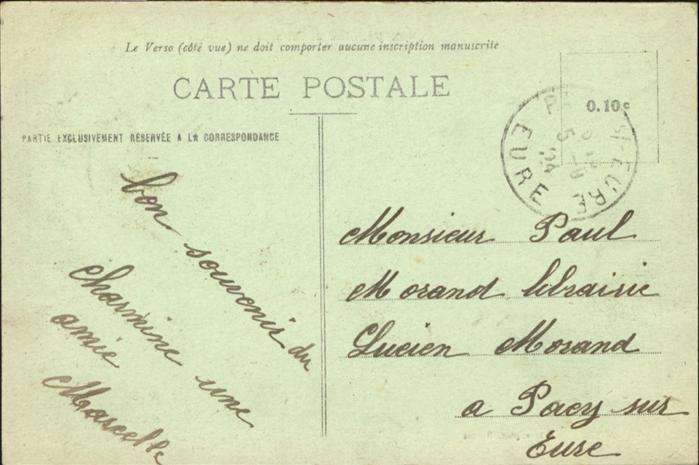 Le Verso (côté vue) ne doit comporter aucune inscription manuscrite
CARTE POSTALE
0.10c
PARTIE EXCLUSIVEMENT RÉSERVÉE A LA CORRESPONDANCE
EURE
EURE
bon souvenir du
charmine une
amie
Marcelle
Monsieur Paul
Morand librairie
Lucien Morand
a Pacy sur
Eure